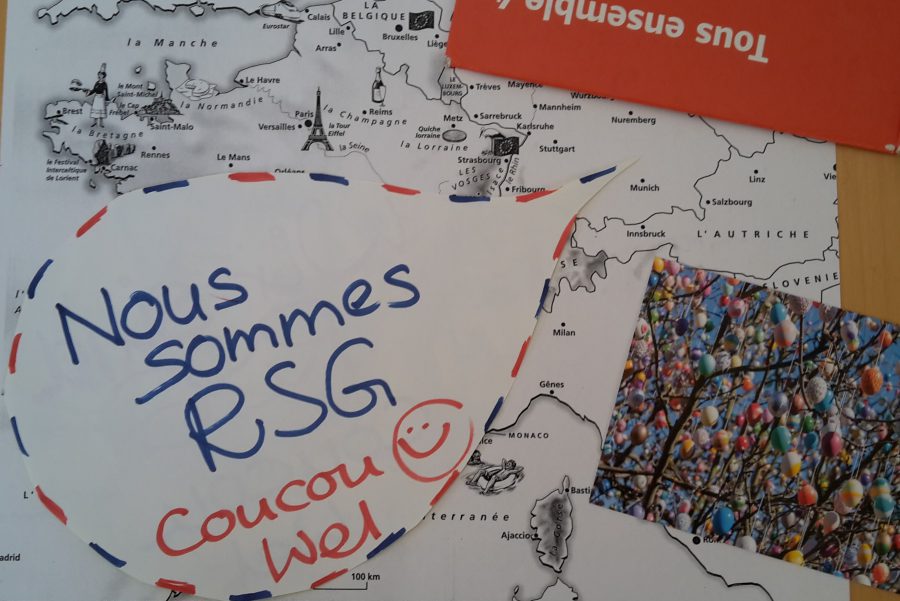 Tous ensemble
Calais
LA
BELGIQUE
Eurostar
Lille
Bruxelles
Liège
la Manche
Arras
Le Havre
le Mont
Saint-Michel
la Normandie
le Cap
Fréhel
Brest
Saint-Malo
la Bretagne
Rennes
le Festival
Interceltique
de Lorient
Carnac
Le Mans
Paris
Versailles
la Tour
Eiffel
la Seine
Reims
la Champagne
LE
LUXEM-
BOURG
Trèves
Mayence
Mannheim
Metz
Sarrebruck
Karlsruhe
Quiche
lorraine
la Lorraine
Stuttgart
Strasbourg
LES
VOSGES
l'Alsace
le Rhin
Fribourg
Wurzbourg
Nuremberg
Munich
Linz
Salzbourg
Innsbruck
L'AUTRICHE
SLOVENIE
SE
Milan
Gênes
MONACO
Ajaccio
la Corse
100 km
Nous
sommes
RSG
Coucou
Wel